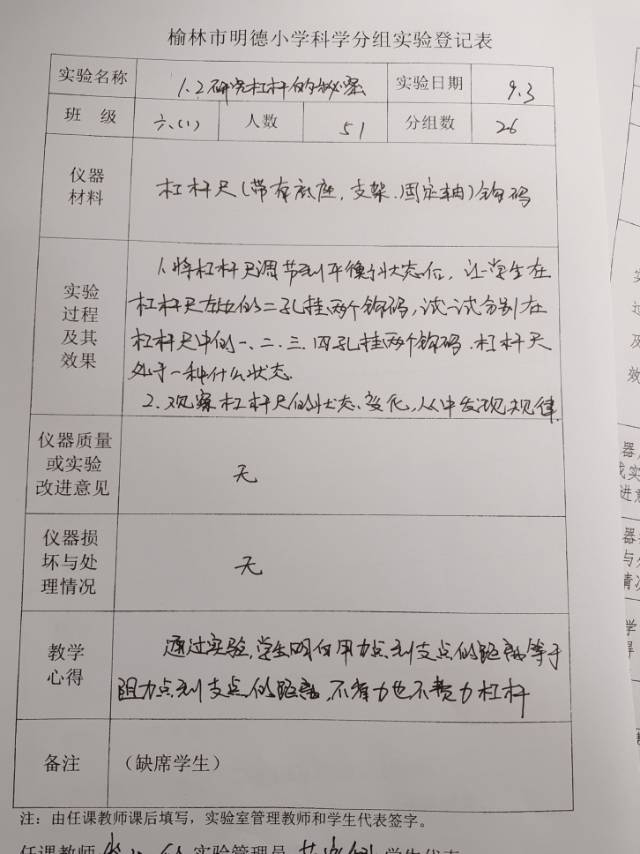 榆林市明德小学科学分组实验登记表
实验名称 1.2研究杠杆的秘密 实验日期 9.3
班 级 六.(1) 人数 51 分组数 26
仪器
材料
杠杆尺(带有底座、支架、固定轴)钩码
实验
过程
及其
效果
1.将杠杆尺调节到平衡状态后,让学生在
杠杆尺左边的二孔挂两个钩码,试一试分别在
杠杆尺中的一、二、三、四孔挂两个钩码.杠杆尺
处于一种什么状态.
2.观察杠杆尺的状态、变化,从中发现规律.
仪器质量
或实验
改进意见
无
仪器损
坏与处
理情况
无
教学
心得
通过实验,学生明白用力点到支点的距离等于
阻力点到支点的距离,不省力也不费力杠杆
备注 (缺席学生)
注:由任课教师课后填写,实验室管理教师和学生代表签字。
任课教师 实验管理员 学生代表